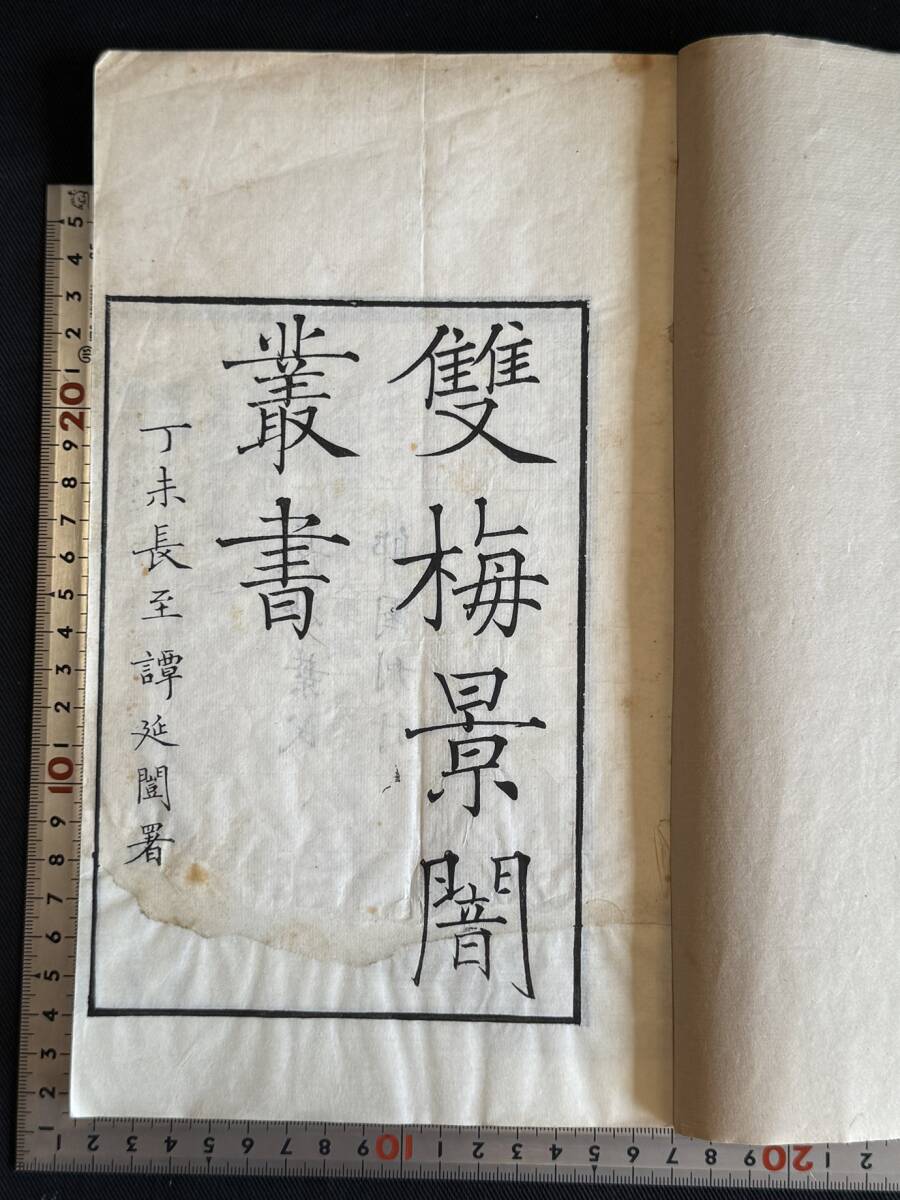 雙梅景闇
叢書
丁未長至譚延闓署